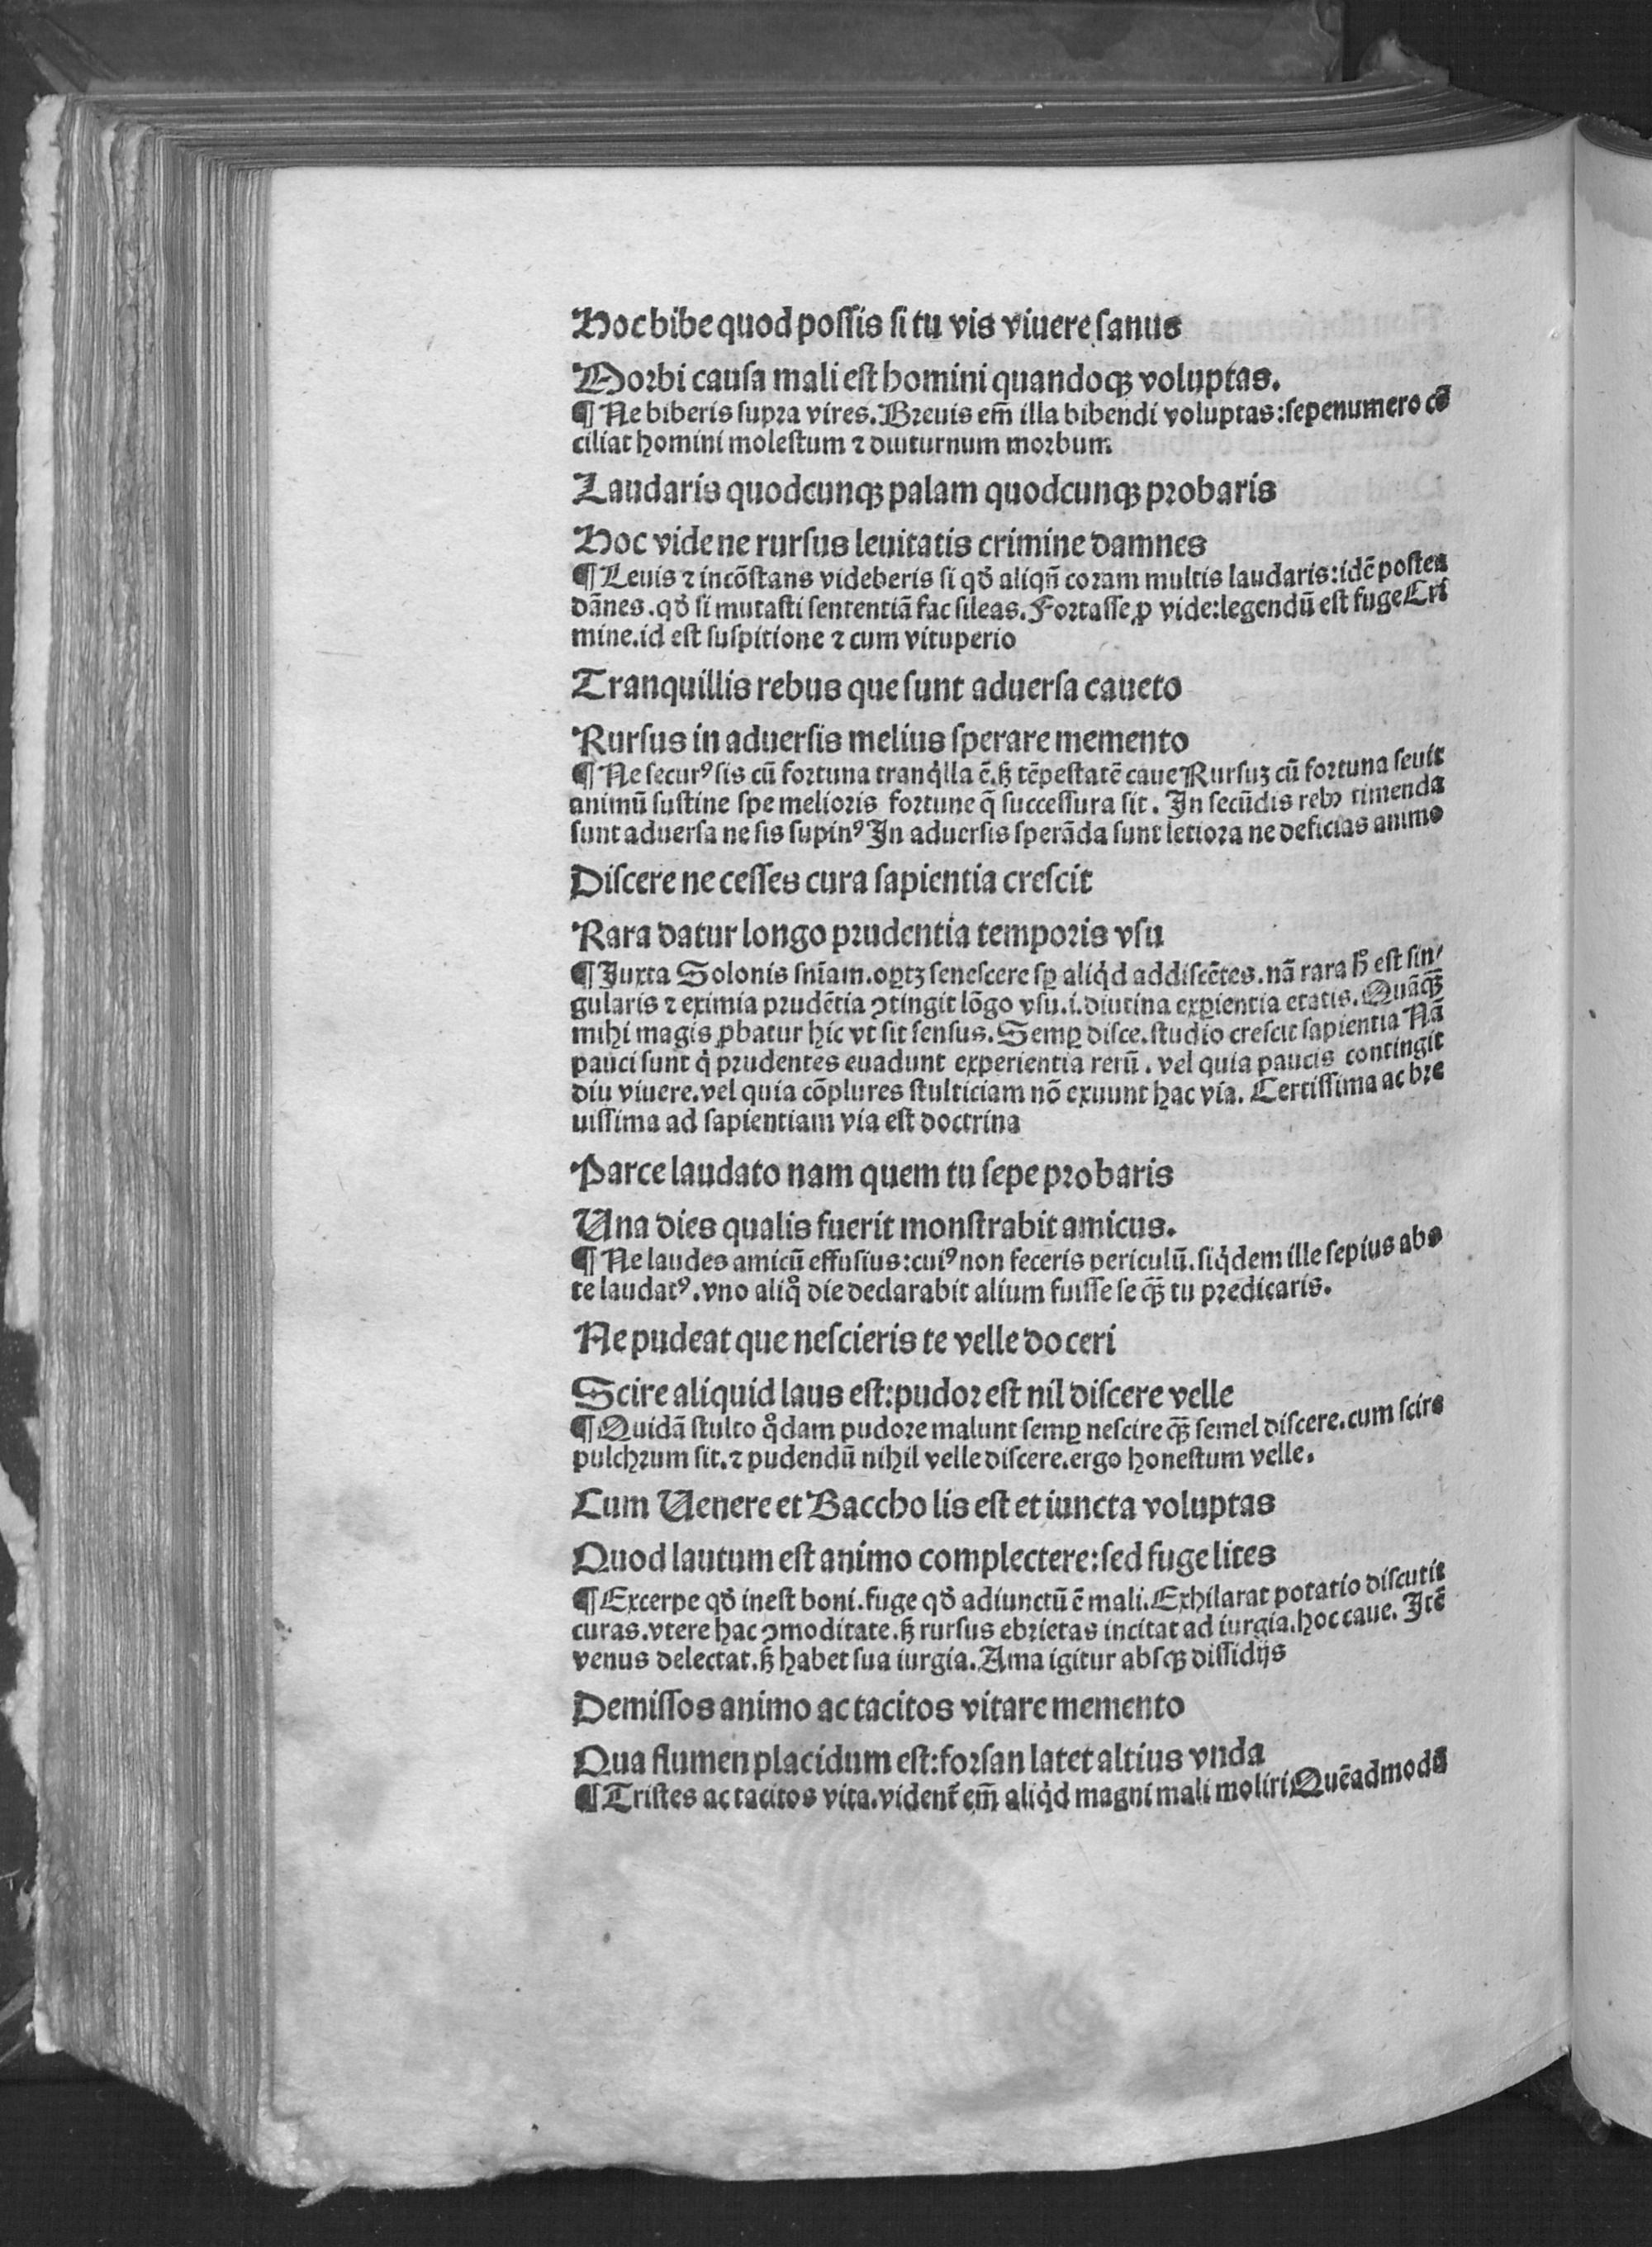 Hoc bibe quod possis si tu vis viuere sanus
Morbi causa mali est homini quandoqꝫ voluptas.
¶ Ne biberis supra vires. Breuis em̄ illa bibendi voluptas: sepenumero cō
ciliat homini molestum ⁊ diuturnum morbum
Laudaris quodcunqꝫ palam quodcunqꝫ probaris
Hoc vide ne rursus leuitatis crimine damnes
¶ Leuis ⁊ incōstans videberis si qd̓ aliqn̄ coram multis laudaris: idē postea
dānes. qd̓ si mutasti sententiā fac sileas. Fortasse ꝓ vide: legendū est fuge Cri
mine. id est suspitione ⁊ cum vituperio
Tranquillis rebus que sunt aduersa caueto
Rursus in aduersis melius sperare memento
¶ Ne securꝰ sis cū fortuna tranq̇lla ē. sꝫ tēpestatē caue Rursuꝫ cū fortuna seuit
animū sustine spe melioris fortune q̄ successura sit. In secūdis rebꝰ timenda
sunt aduersa ne sis supinꝰ In aduersis sperāda sunt letiora ne deficias animo
Discere ne cesses cura sapientia crescit
Rara datur longo prudentia temporis vsu
¶ Juxta Solonis sn̄iam. oꝑtꝫ senescere sꝑ aliq̇d addiscētes. nā rara h̓ est sin⸗
gularis ⁊ eximia prudētia ꝯtingit lōgo vsu. i. diutina exꝑientia etatis. Quāqꝫ̄
mihi magis ꝓbatur hic vt sit sensus. Semꝑ disce. studio crescit sapientia Nā
pauci sunt q̇ prudentes euadunt experientia rerū. vel quia paucis contingit
diu viuere. vel quia cōplures stulticiam nō exuunt hac via. Certissima ac bre
uissima ad sapientiam via est doctrina
Parce laudato nam quem tu sepe probaris
Una dies qualis fuerit monstrabit amicus.
¶ Ne laudes amicū effusius: cuiꝰ non feceris periculū. siq̇dem ille sepius abs
te laudatꝰ. vno aliqͦ die declarabit alium fuisse se qꝫ̄ tu predicaris.
Ne pudeat que nescieris te velle doceri
Scire aliquid laus est: pudor est nil discere velle
¶ Quidā stulto qͦdam pudore malunt semꝑ nescire qꝫ̄ semel discere. cum scire
pulchrum sit. ⁊ pudendū nihil velle discere. ergo honestum velle.
Cum Uenere et Baccho lis est et iuncta voluptas
Quod lautum est animo complectere: sed fuge lites
¶ Excerpe qd̓ inest boni. fuge qd̓ adiunctū ē mali. Exhilarat potatio discutit
curas. vtere hac ꝯmoditate. sꝫ rursus ebrietas incitat ad iurgia. hoc caue. Itē
venus delectat. sꝫ habet sua iurgia. Ama igitur absqꝫ dissidijs
Demissos animo ac tacitos vitare memento
Qua flumen placidum est: forsan latet altius vnda
¶ Tristes ac tacitos vita. vident᷑ em̄ aliq̇d magni mali moliri Quēadmodū